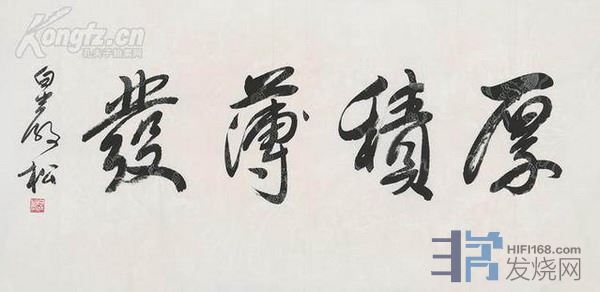 Kongfz.cn
孔夫子拍卖网
厚積薄發
松
HIFI168.com
发烧网